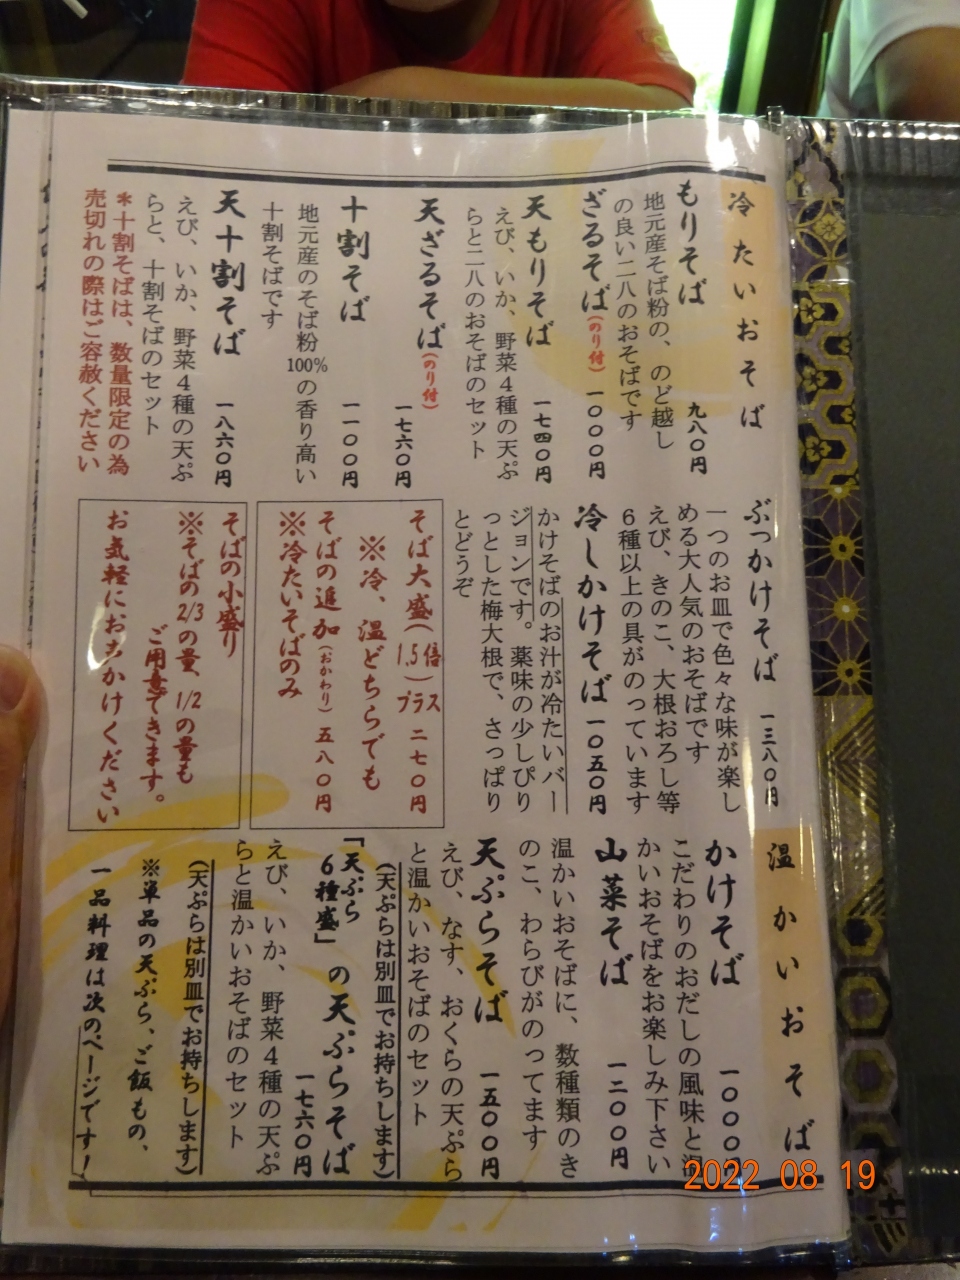 冷たいおそば
もりそば 九八〇円
地元産そば粉の、のど越し
の良い二八のおそばです
ざるそば(のり付) 一〇〇〇円
天もりそば 一七四〇円
えび、いか、野菜4種の天ぷ
らと二八のおそばのセット
天ざるそば(のり付) 一七六〇円
十割そば 一一〇〇円
地元産のそば粉100%の香り高い
十割そばです
天十割そば 一八六〇円
えび、いか、野菜4種の天ぷ
らと、十割そばのセット
*十割そばは、数量限定の為
売切れの際はご容赦ください
ぶっかけそば 一三八〇円
一つのお皿で色々な味が楽し
める大人気のおそばです
えび、きのこ、大根おろし等
6種以上の具がのっています
冷しかけそば 一〇五〇円
かけそばのお汁が冷たいバー
ジョンです。薬味の少しぴり
っとした梅大根で、さっぱり
とどうぞ
そば大盛(1.5倍)プラス 二七〇円
※冷、温どちらでも
そばの追加(おかわり)五八〇円
※冷たいそばのみ
そばの小盛り
※そばの2/3の量、1/2の量も
ご用意できます。
お気軽にお声かけください
温かいおそば
かけそば 一〇〇〇円
こだわりのおだしの風味と温
かいおそばをお楽しみ下さい
山菜そば 一二〇〇円
温かいおそばに、数種類のき
のこ、わらびがのってます
天ぷらそば 一五〇〇円
えび、なす、おくらの天ぷら
と温かいおそばのセット
(天ぷらは別皿でお持ちします)
「天ぷら6種盛」の天ぷらそば
一七六〇円
えび、いか、野菜4種の天ぷ
らと温かいおそばのセット
(天ぷらは別皿でお持ちします)
※単品の天ぷら、ご飯もの、
一品料理は次のページです!
2022 08 19